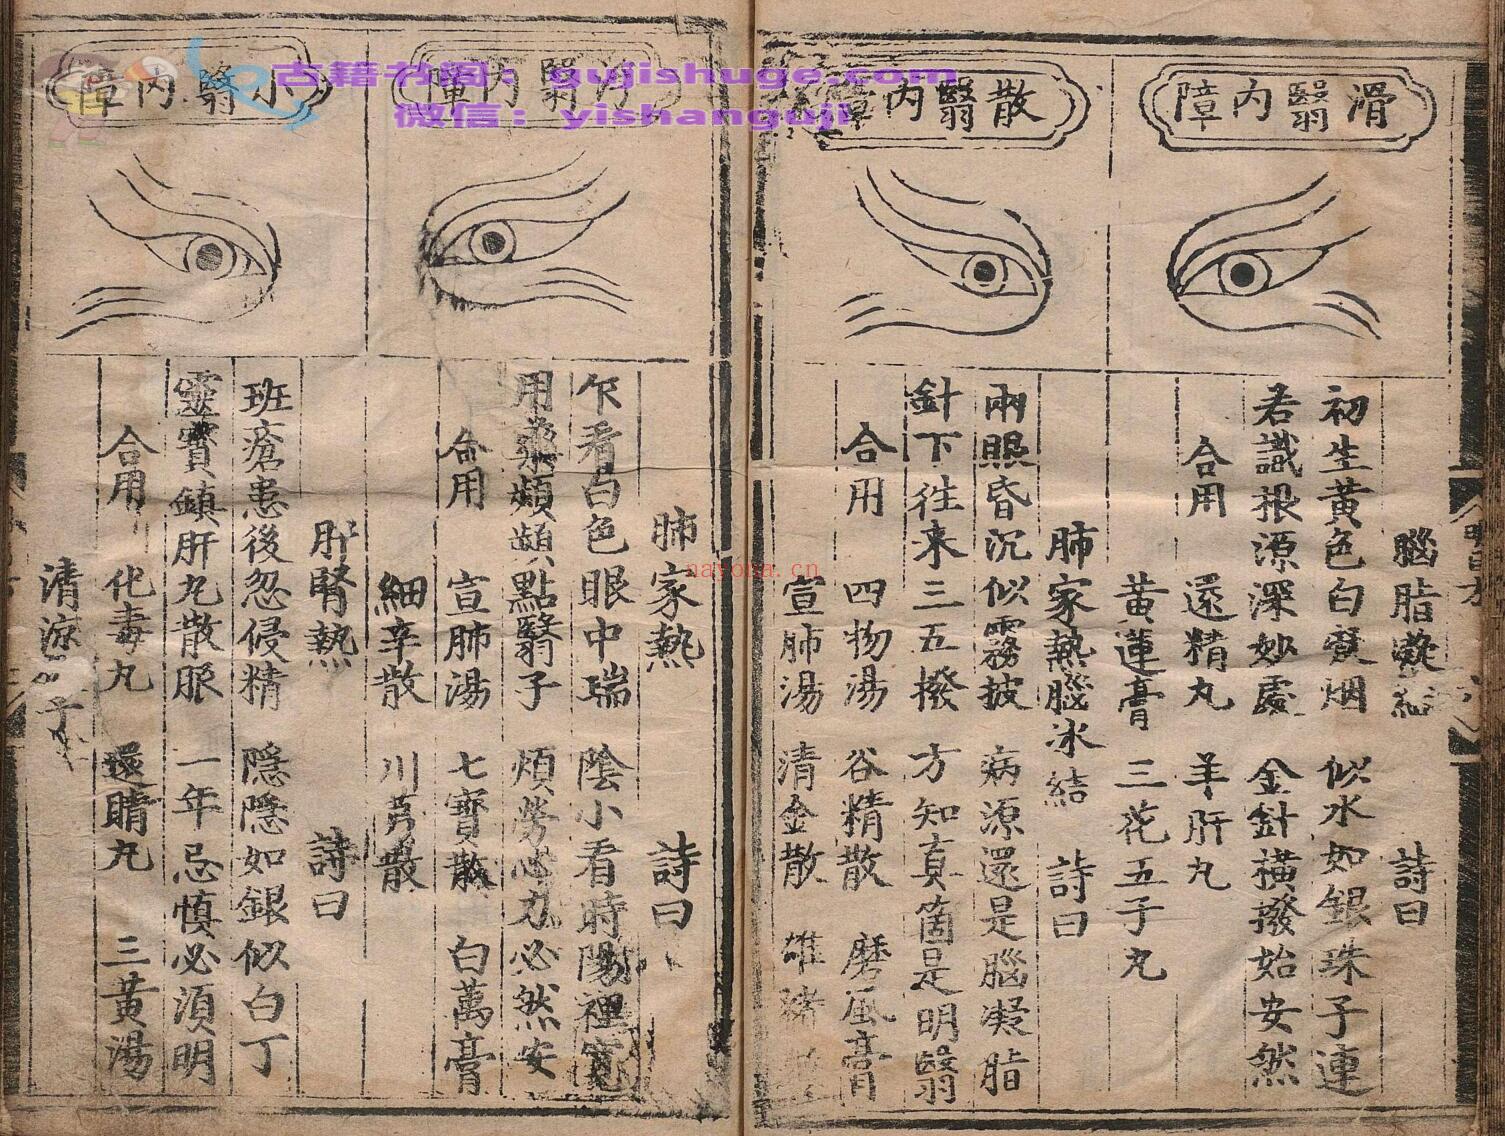 滑翳內障
腦脂凝結 詩曰
初生黃色白㒹烟 似水如銀珠子連
若識根源深妙處 金針橫撥始安然
合用 還精丸 羊肝丸
黃蓮膏 三花五子丸
散翳內障
肺家熱腦冰結 詩曰
兩眼昏沉似霧披 病源還是腦凝脂
針下往來三五撥 方知真箇是明翳
合用 四物湯 谷精散 磨風膏
宣肺湯 清金散 雄豬
翳內障
肺家熱 詩曰
乍看白色眼中瑞 陰小看時陽裡寬
用藥頻頻點翳子 煩勞心力必然安
合用 宣肺湯 七寶散 白萬膏
細辛散 川芎散
小翳內障
肝腎熱 詩曰
班瘡患後忽侵精 隱隱如銀似白丁
靈寶鎮肝丸散服 一年忌慎必須明
合用 化毒丸 還睛丸 三黃湯
清涼
古籍书阁：gujishuge.com
微信：yishanguji
nayona.cn